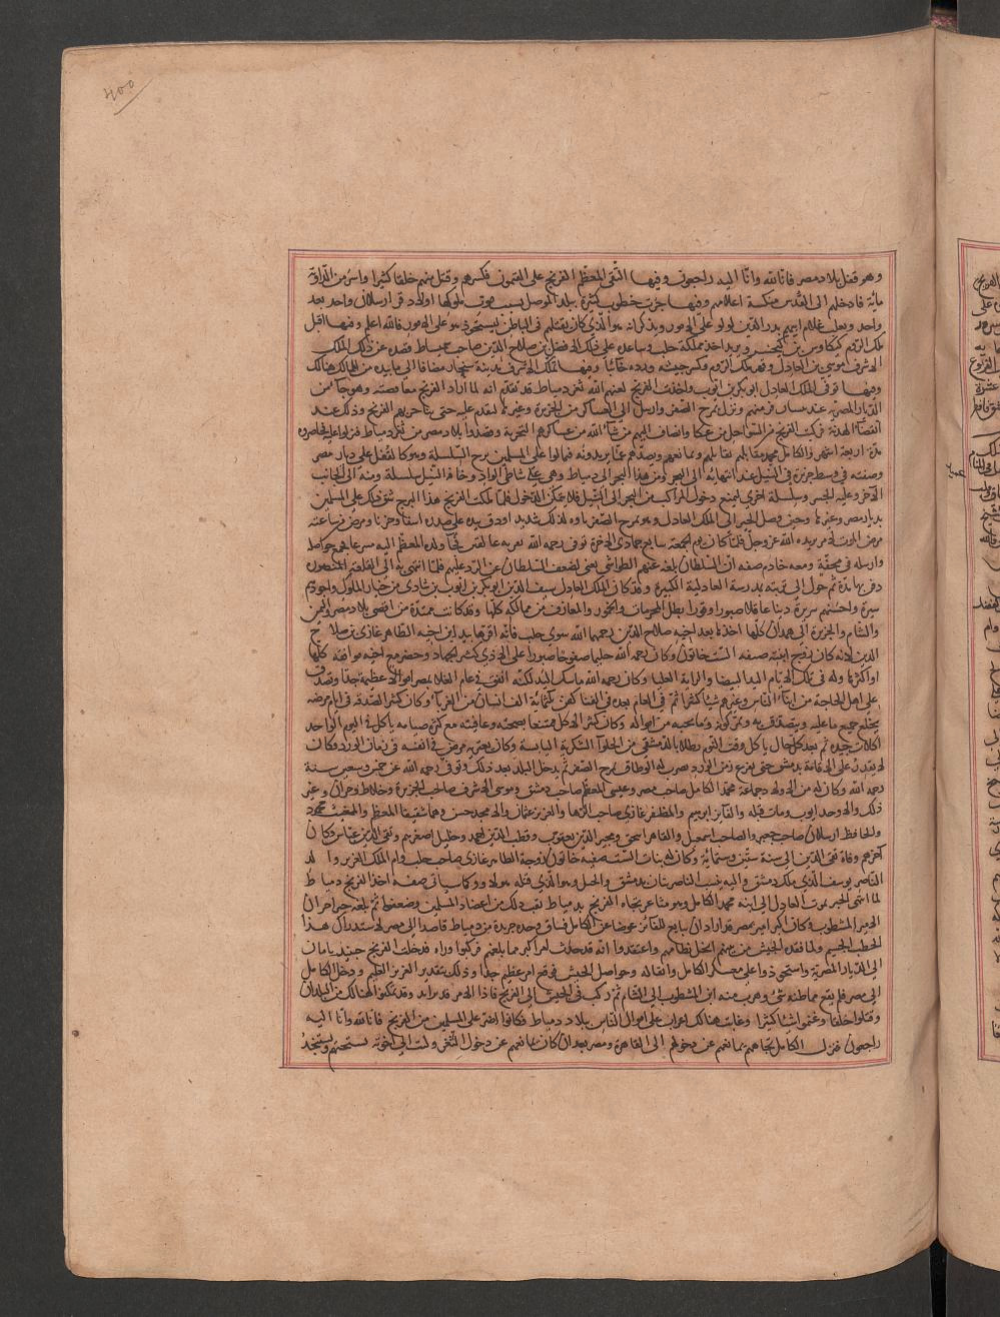 ٤٠٠
وهو قفل بلاد مصر فانا لله وانا اليه راجعون وفيها التقى المعظم الفرنج على القيمون فكسرهم وقتل منهم خلقا كثيرا واسر من الداوية
مائة فادخلهم الى القدس منكسة اعلامهم وفيها جرت خطوب كثيرة ببلد الموصل بسبب موت ملوكها اولاد قرا ارسلان واحد بعد
واحد وتغلب غلام ابيهم بدر الدين لولو على الامور ويذكر انه هو الذي كان يقتلهم في الباطن ليستحوذ هو على الامور فالله اعلم وفيها اقبل
ملك الروم كيكاوس بن كيخسرو يريد اخذ مملكة حلب وساعده على ذلك الافضل بن صلاح الدين صاحب سميساط فصده عن ذلك الملك
الاشرف موسى بن العادل وقهر ملك الروم وكسر جيشه ورده خائبا وفيها ملك الاشرف مدينة سنجار مضافا الى ما بيده من الممالك هنالك
وفيها توفي الملك العادل ابو بكر بن ايوب واخذت الفرنج لعنهم الله ثغر دمياط قد تقدم انه لما اراد الفرنج معاصته وهو جا من
الديار المصرية عند بيسان فر منهم ونزل بمرج الصفر وارسل الى العساكر من الجزيرة وغيرها لتقدم عليه حتى يناجزهم الفرنج وذلك عند
انقضاء الهدنة فركبت الفرنج من السواحل من عكا وانضاف اليهم من شاء الله من عساكرهم البحرية وقصدوا بلاد مصر من ثغر دمياط فنزلوا عليه محاصروه
مدة اربعة اشهر والكامل محمد مقابلهم يقاتلهم ويمانعهم ويصدهم عما يريدونه فمالوا على المسلمين برج السلسلة وهو كالقفل على ديار مصر
وصفته في وسط جزيرة في النيل عند انتهائه الى البحر ومن هذا البحر الى دمياط وهي على شاطئ الوادي وحافة النيل سلسلة ومنه الى الجانب
الآخر وعليه الجسر وسلسلة اخرى ليمنع دخول المراكب من البحر الى النيل فلا يمكن الدخول فلما ملكت الفرنج هذا البرج شق ذلك على المسلمين
بديار مصر وغيرها وحين وصل الخبر الى الملك العادل وهو بمرج الصفر تاوه لذلك تاوها شديدا ودق بيده على صدره اسفا وحزنا ومرض من ساعته
مرض الموت لامر يريده الله عز وجل فلما كان يوم الجمعة سابع جمادى الاخرة توفي رحمه الله بقرية عالقين فجاء ولده المعظم اليه مسرعا فجمع حواصله
وارسله في محفة ومعه خادم بصفة ان السلطان
دفن بها مدة ثم حول الى تربته بمدرسة العادلية الكبيرة وقد كان الملك العادل سيف الدين ابو بكر بن ايوب بن شادي من خيار الملوك واجودهم
سيرة واحسنهم سريرة دينا عاقلا صبورا وقورا ابطل المحرمات والخمور والمعازف من ممالكه كلها وقد كانت ممتدة من اقصى بلاد مصر واليمن
والشام والجزيرة الى همدان كلها اخذها بعد اخيه صلاح الدين رحمهما الله سوى حلب فانه اقرها بيد ابن اخيه الظاهر غازي بن صلاح
الدين لانه كان زوج ابنته صفية الست خاتون وكان رحمه الله حليما صفوحا صبورا على الاذى كثير الجهاد وحضر مع اخيه مواقفه كلها
او اكثرها وله في تلك الايام اليد البيضا والراية العليا وكان رحمه الله ماسك اليد لكنه انفق في عام الغلا بمصر اموالا عظيمة جدا وتصدق
على اهل الحاجة من ابناء الناس وغيرهم شيئا كثيرا ثم في العام بعده في الفنا كفن ثلثمائة الف انسان من الغرباء وكان كثير الصدقة في ايام مرضه
يخلع جميع ما عليه ويتصدق به ومركوبه وما يحبه من امواله وكان كثير الاكل ممتعا بصحته وعافيته مع كثرة صيامه ياكل في اليوم الواحد
اكلات جيدة ثم بعد كل حال ياكل وقت النوم رطلا بالدمشقي من الحلوا السكرية اليابسة وكان يعتريه مرض في انفه في زمان الورد وكان
لا يقدر على الاقامة بدمشق حتى يفرغ زمن الورد ويضرب له الوطاق بمرج الصفر ثم يدخل البلد بعد ذلك وتوفي رحمه الله عن خمس وسبعين سنة
رحمه الله وكان له من الاولاد جماعة محمد الكامل صاحب مصر وعيسى المعظم صاحب دمشق وموسى الاشرف صاحب الجزيرة وخلاط وحران وغير
ذلك والاوحد ايوب ومات قبله والفايز ابراهيم والمظفر غازي صاحب الرها والعزيز عثمان والامجد حسن وهما شقيقا المعظم والمغيث محمود
والحافظ ارسلان صاحب جعبر والصالح اسمعيل والقاهر اسحق ومجير الدين يعقوب وقطب الدين احمد وخليل اصغرهم وتقي الدين عباس وكان
آخرهم وفاة تقي الدين الى سنة ستين وستمائة وكان له بنات الست صفية خاتون زوجة الظاهر غازي صاحب حلب وام الملك العزيز والد
الناصر يوسف الذي ملك دمشق واليه ينسب الناصريتان بدمشق والجبل وهو الذي قتله هولاوو كما سياتي صفة اخذ الفرنج دمياط
لما انتهى الخبر بموت العادل الى ابنه محمد الكامل وهو مثاغر تجاه الفرنج بدمياط فت ذلك من اعضاد المسلمين وضعفوا ثم بلغه خبر آخر ان
الامير المشطوب وكان اكبر امير بمصر قد اراد ان يبايع للفائز عوضا عن الكامل فساق وحده جريدة من دمياط قاصدا الى مصر لاستدراك هذا
الخطب الجسيم ولما فقده الجيش من بينهم انحل نظامهم واعتقدوا انه قد حدث امر اكبر مما بلغهم فركبوا وراءه فدخلت الفرنج حينئذ بامان
الى الديار المصرية واستحوذوا على معسكر الكامل واثقاله وحواصل الجيش فوقع امر عظيم جدا وذلك بتقدير العزيز العليم ودخل الكامل
الى مصر فلم يقع مما ظنه شئ وهرب منه ابن المشطوب الى الشام ثم ركب في الجيش الى الفرنج فاذا الامر قد تزايد وقد تمكنوا هنالك من البلدان
وقتلوا خلقا وغنموا شيئا كثيرا وعاثت هنالك اعراب على اموال الناس ببلاد دمياط فكانوا اضر على المسلمين من الفرنج فانا لله وانا اليه
راجعون فنزل الكامل تجاههم يمانعهم عن دخولهم الى القاهرة ومصر بعد ان كان يمانعهم عن دخول الثغر وكتب الى اخوته يستحثهم ويستنجد